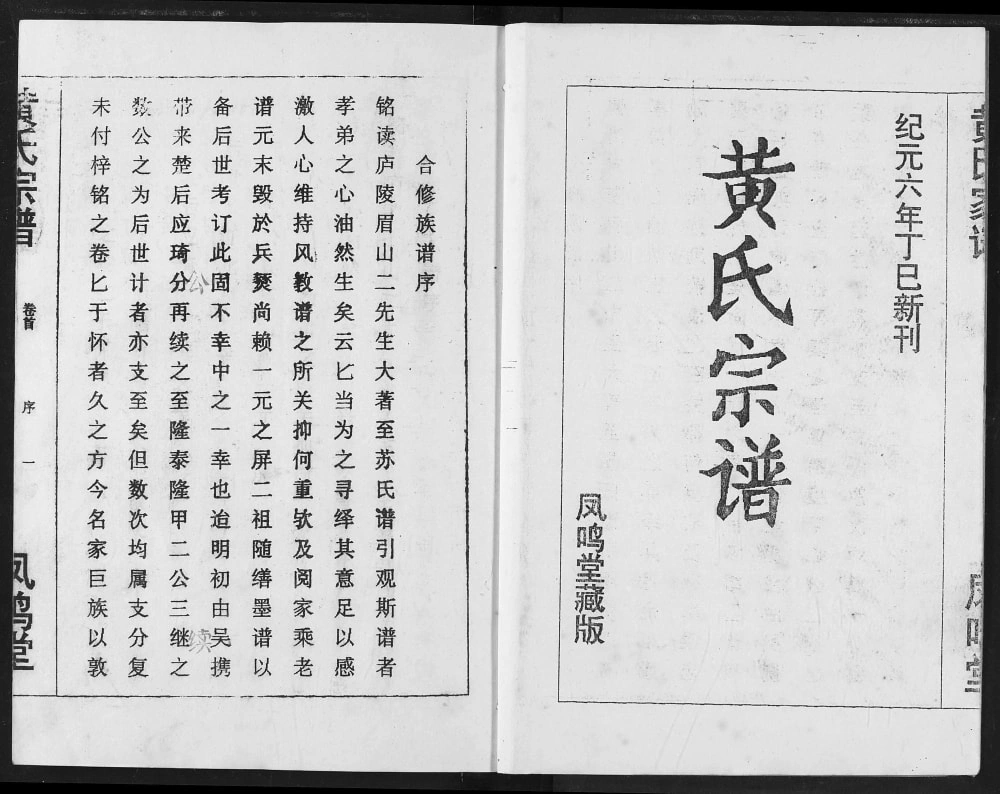 纪元六年丁巳新刊
黄氏宗谱
凤鸣堂藏版
合修族谱序
铭读庐陵眉山二先生大著至苏氏谱引观斯谱者
孝弟之心油然生矣云匕当为之寻绎其意足以感
激人心维持风教谱之所关抑何重欤及阅家乘老
谱元末毁於兵燹尚赖一元之屏二祖随缮墨谱以
备后世考订此固不幸中之一幸也迨明初由吴携
带来楚后应琦分再续之至隆泰隆甲二公三继之
数公之为后世计者亦支至矣但数次均属支分复
未付梓铭之卷匕于怀者久之方今名家巨族以敦
公
续
黄氏宗谱
卷首
序
一
凤鸣堂